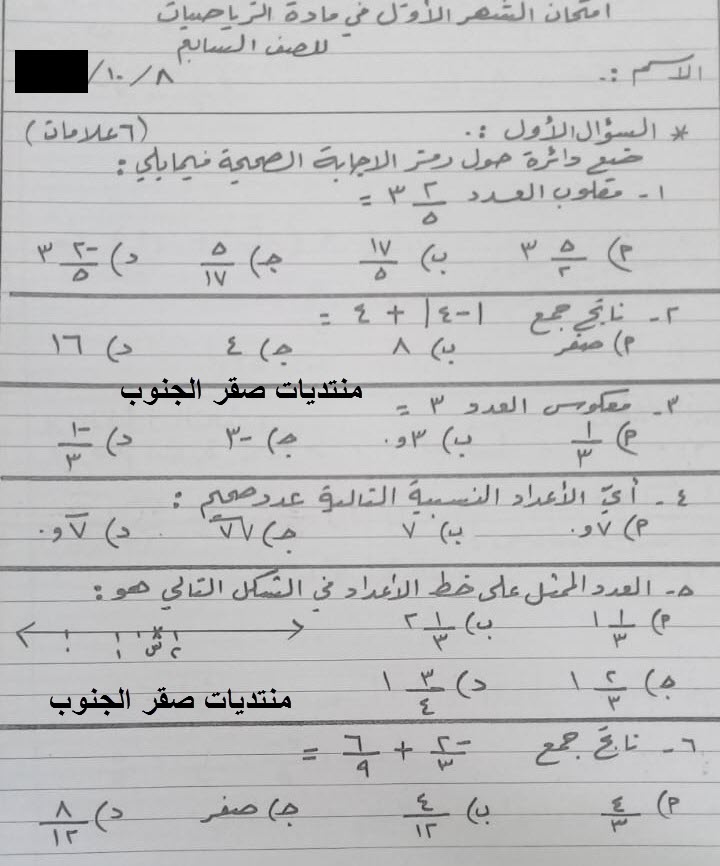 امتحان الشهر الأول في مادة الرياضيات
للصف السابع
الاسم :.
٨ / ١٠ /
* السؤال الأول :. (٦ علامات)
ضع دائرة حول رمز الاجابة الصحيحة فيما يلي :
١- مقلوب العدد ٣ ٢/٥ =
أ) ٣ ٥/٢ ب) ١٧/٥ جـ) ٥/١٧ د) ٣ -٢/٥
٢- ناتج جمع |-٤| + ٤ =
أ) صفر ب) ٨ جـ) ٤ د) ١٦
منتديات صقر الجنوب
٣- معكوس العدد ٣ =
أ) ١/٣ ب) ٣و٠ جـ) -٣ د) -١/٣
٤- أيّ الأعداد النسبية التالية عدد صحيح :
أ) ٧و٠ ب) ٧ جـ) √٧ د) ٧̅و٠
٥- العدد الممثل على خط الأعداد في الشكل التالي هو :
أ) ١ ١/٣ ب) ٢ ١/٣
٠ ١ س ٢
جـ) ١ ٢/٣ د) ١ ٣/٤
منتديات صقر الجنوب
٦- ناتج جمع -٢/٣ + ٦/٩ =
أ) ٤/٣ ب) ٤/١٢ جـ) صفر د) ٨/١٢